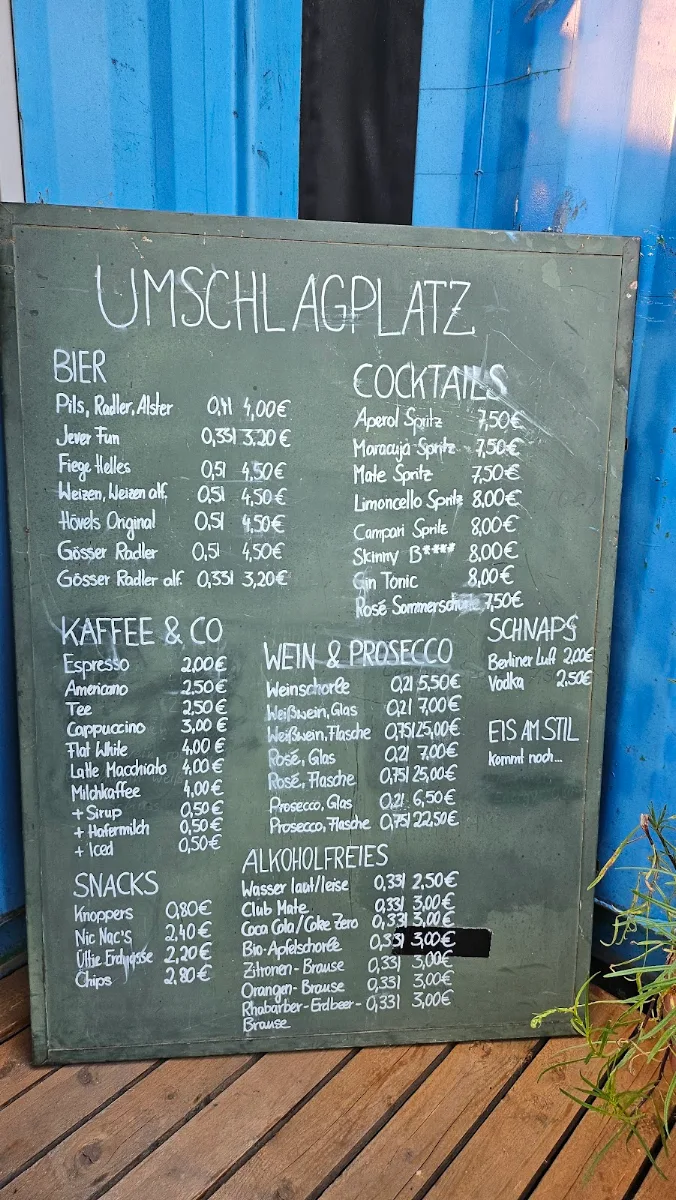 UMSCHLAGPLATZ
BIER
Pils, Radler, Alster 0,4l 4,00€
Jever Fun 0,33l 3,20€
Fiege Helles 0,5l 4,50€
Weizen, Weizen alf. 0,5l 4,50€
Hövels Original 0,5l 4,50€
Gösser Radler 0,5l 4,50€
Gösser Radler alf. 0,33l 3,20€
COCKTAILS
Aperol Spritz 7,50€
Maracuja Spritz 7,50€
Mate Spritz 7,50€
Limoncello Spritz 8,00€
Campari Spritz 8,00€
Skinny B**** 8,00€
Gin Tonic 8,00€
Rosé Sommerschorle 7,50€
KAFFEE & CO
Espresso 2,00€
Americano 2,50€
Tee 2,50€
Cappuccino 3,00€
Flat White 4,00€
Latte Macchiato 4,00€
Milchkaffee 4,00€
+ Sirup 0,50€
+ Hafermilch 0,50€
+ Iced 0,50€
WEIN & PROSECCO
Weinschorle 0,2l 5,50€
Weißwein, Glas 0,2l 7,00€
Weißwein, Flasche 0,75l 25,00€
Rosé, Glas 0,2l 7,00€
Rosé, Flasche 0,75l 25,00€
Prosecco, Glas 0,2l 6,50€
Prosecco, Flasche 0,75l 22,50€
SCHNAPS
Berliner Luft 2,00€
Vodka 2,50€
EIS AM STIL
kommt noch...
SNACKS
Knoppers 0,80€
Nic Nac's 2,40€
Ültje Erdnüsse 2,20€
Chips 2,80€
ALKOHOLFREIES
Wasser laut/leise 0,33l 2,50€
Club Mate 0,33l 3,00€
Coca Cola/Coke Zero 0,33l 3,00€
Bio-Apfelschorle 0,33l 3,00€
Zitronen-Brause 0,33l 3,00€
Orangen-Brause 0,33l 3,00€
Rhabarber-Erdbeer- 0,33l 3,00€
Brause